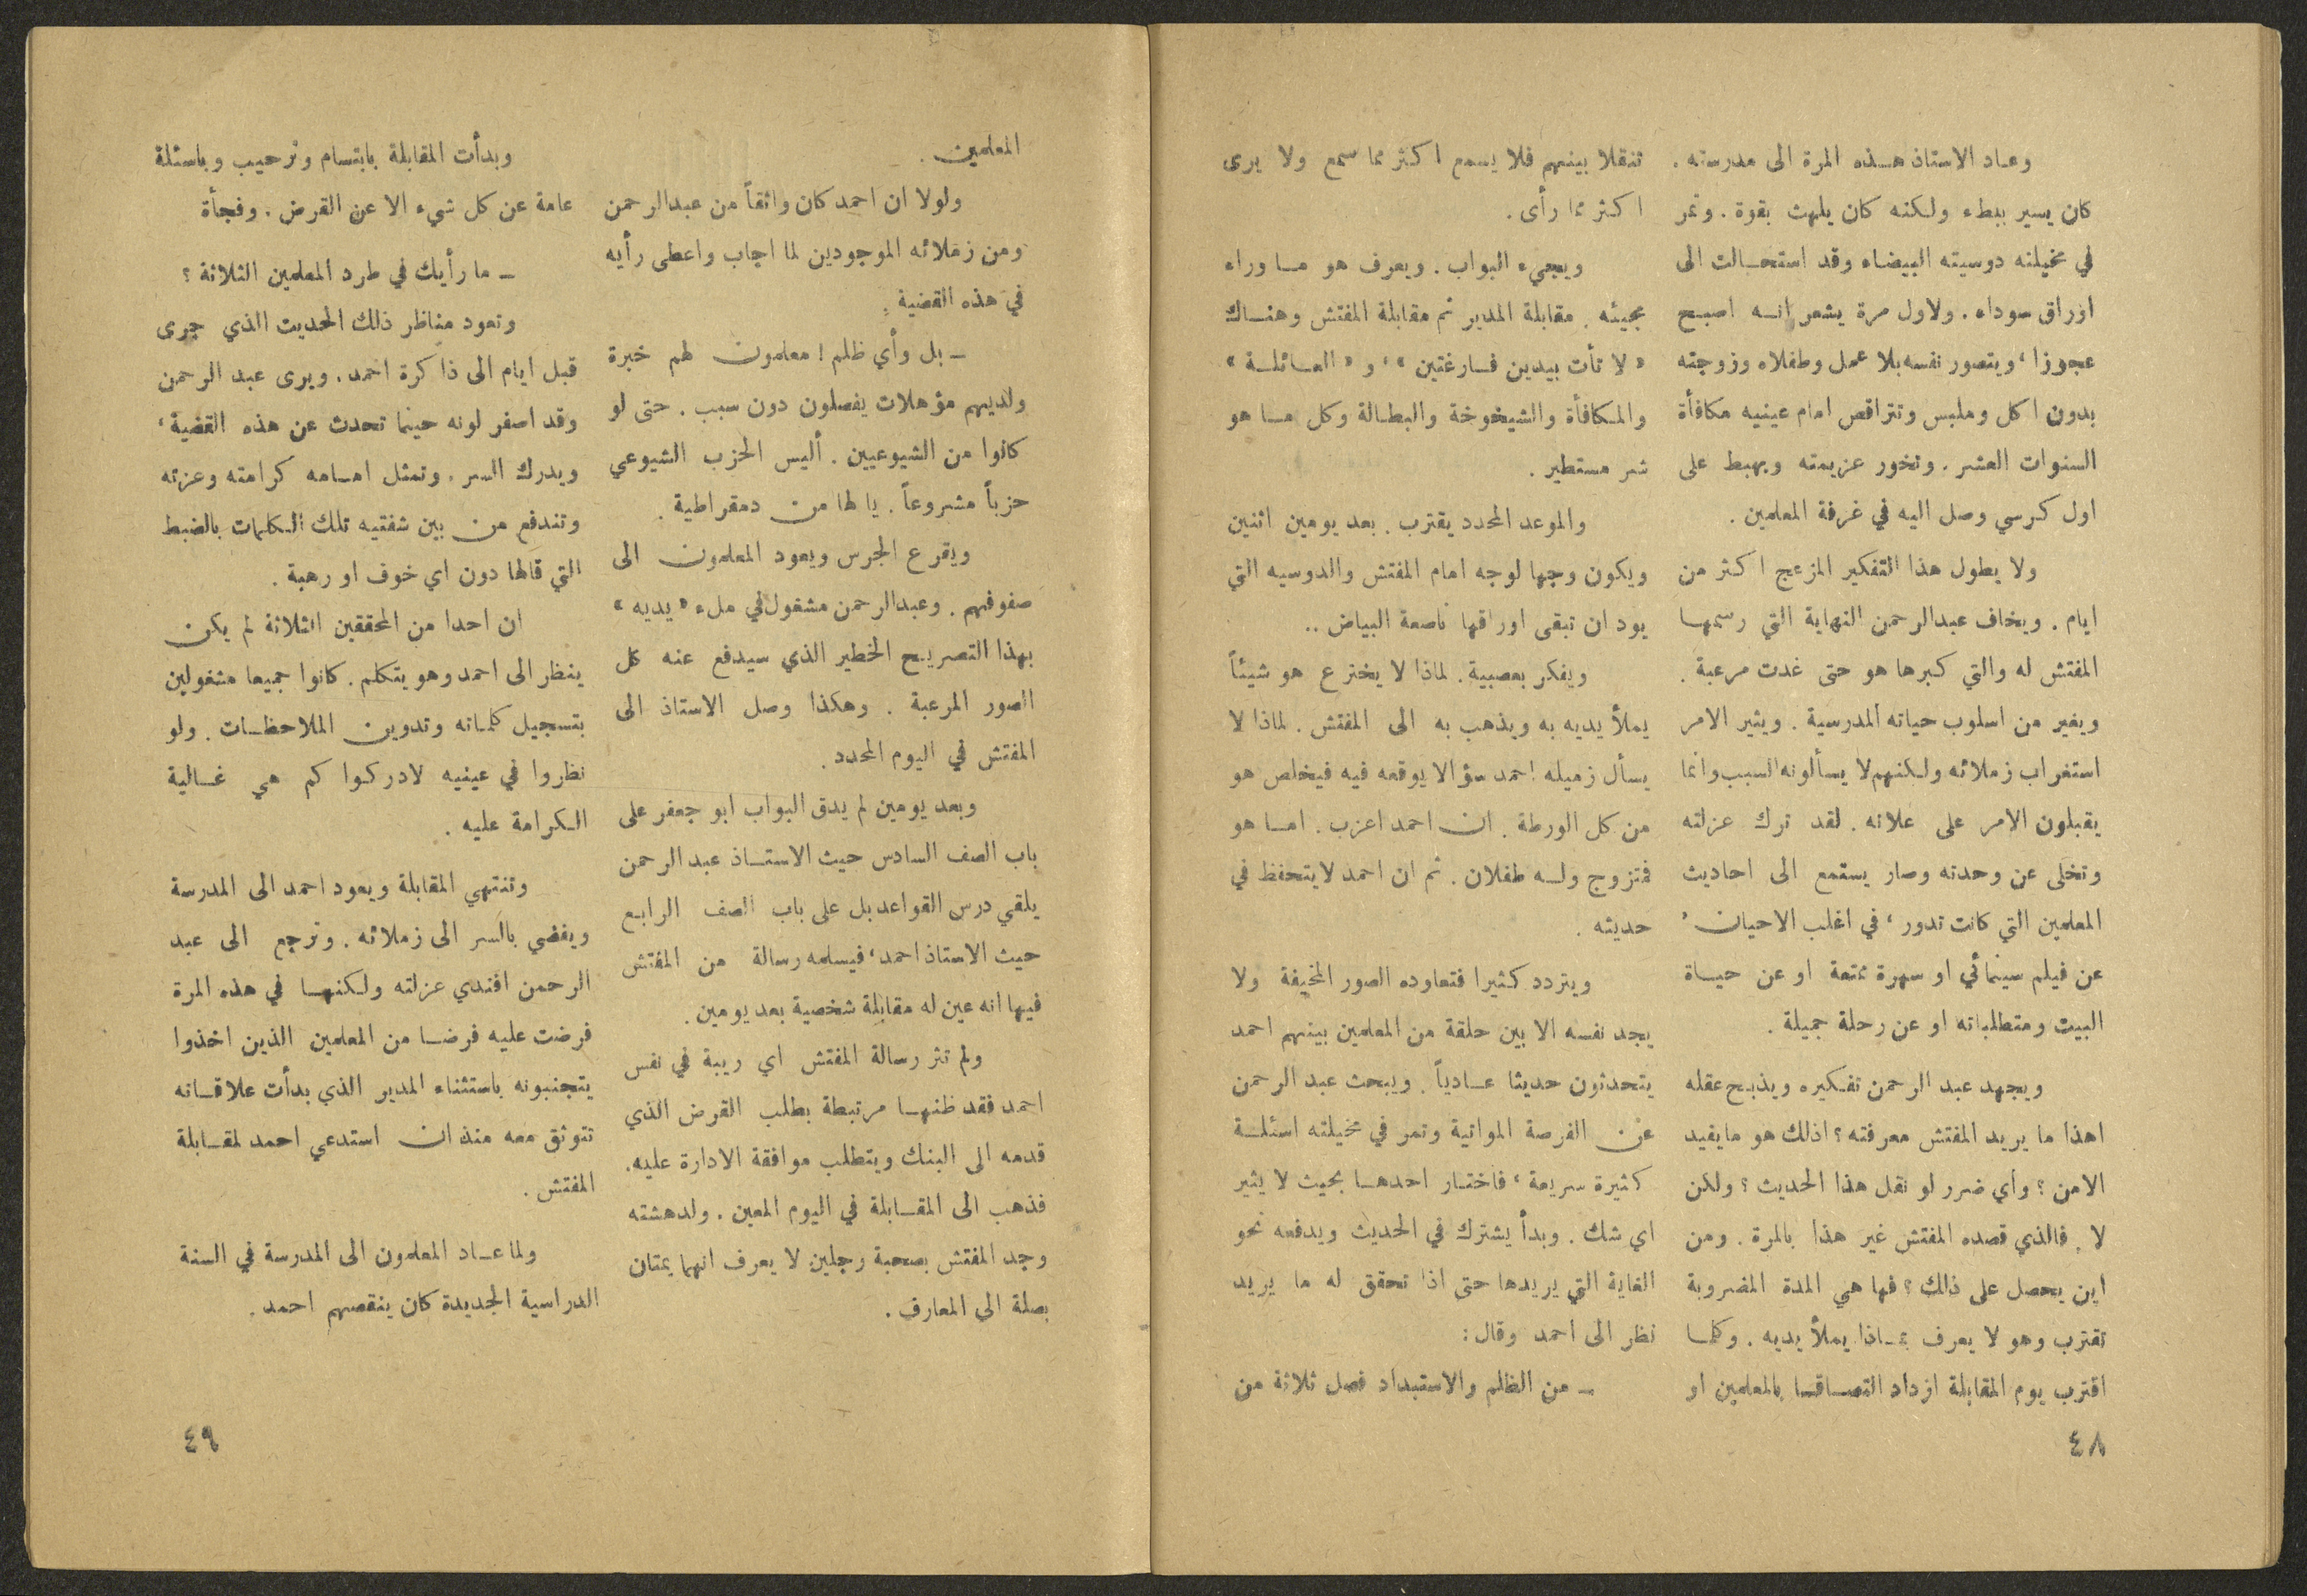 وعاد الاستاذ هذه المرة الى مدرسته .
كان يسير ببطء ولكنه كان يلهث بقوة . وتمر
في مخيلته دوسيته البيضاء وقد استحالت الى
اوراق سوداء . ولاول مرة يشعر انه اصبح
عجوزا ، ويتصور نفسه بلا عمل وطفلاه وزوجته
بدون اكل وملبس وتتراقص امام عينيه مكافأة
السنوات العشر . وتخور عزيمته ويهبط على
اول كرسي وصل اليه في غرفة المعلمين .
ولا يطول هذا التفكير المزعج اكثر من
ايام . ويخاف عبدالرحمن النهاية التي رسمها
المفتش له والتي كبرها هو حتى غدت مرعبة .
ويغير من اسلوب حياته المدرسية . ويثير الامر
استغراب زملائه ولكنهم لا يسألونه السبب وانما
يقبلون الامر على علاته . لقد ترك عزلته
وتخلى عن وحدته وصار يستمع الى احاديث
المعلمين التي كانت تدور ، في اغلب الاحيان ،
عن فيلم سينمائي او سهرة ممتعة او عن حياة
البيت ومتطلباته او عن رحلة جميلة .
ويجهد عبد الرحمن تفكيره ويذبح عقله
اهذا ما يريد المفتش معرفته ؟ اذلك هو ما يفيد
الامن ؟ وأي ضرر لو نقل هذا الحديث ؟ ولكن
لا . فالذي قصده المفتش غير هذا بالمرة . ومن
اين يحصل على ذلك ؟ فها هي المدة المضروبة
تقترب وهو لا يعرف بماذا يملأ يديه . وكلما
اقترب يوم المقابلة ازداد التصاقا بالمعلمين او
٤٨
تنقلا بينهم فلا يسمع اكثر مما سمع ولا يرى
اكثر مما رأى .
ويجيء البواب . ويعرف هو ما وراء
مجيئه . مقابلة المدير ثم مقابلة المفتش وهناك
« لا تأت بيدين فارغتين » ، و « العائلة »
والمكافأة والشيخوخة والبطالة وكل ما هو
شر مستطير .
والموعد المحدد يقترب . بعد يومين اثنين
ويكون وجها لوجه امام المفتش والدوسيه التي
يود ان تبقى اوراقها ناصعة البياض ..
ويفكر بعصبية . لماذا لا يخترع هو شيئاً
يملأ يديه به ويذهب به الى المفتش . لماذا لا
يسأل زميله احمد سؤالا يوقعه فيه فيخلص هو
من كل الورطة . ان احمد اعزب . اما هو
فتزوج وله طفلان . ثم ان احمد لا يتحفظ في
حديثه .
ويتردد كثيرا فتعاوده الصور المخيفة ولا
يجد نفسه الا بين حلقة من المعلمين بينهم احمد
يتحدثون حديثا عادياً . ويبحث عبد الرحمن
عن الفرصة المواتية وتمر في مخيلته اسئلة
كثيرة سريعة ، فاختار احدها بحيث لا يثير
اي شك . وبدأ يشترك في الحديث ويدفعه نحو
الغاية التي يريدها حتى اذا تحقق له ما يريد
نظر الى احمد وقال :
– من الظلم والاستبداد فصل ثلاثة من
المعلمين .
ولولا ان احمد كان واثقاً من عبدالرحمن
ومن زملائه الموجودين لما اجاب واعطى رأيه
في هذه القضية .
– بل وأي ظلم ! معلمون لهم خبرة
ولديهم مؤهلات يفصلون دون سبب . حتى لو
كانوا من الشيوعيين . أليس الحزب الشيوعي
حزباً مشروعاً . يا لها من دمقراطية .
ويقرع الجرس ويعود المعلمون الى
صفوفهم . وعبدالرحمن مشغول في ملء « يديه »
بهذا التصريح الخطير الذي سيدفع عنه كل
الصور المرعبة . وهكذا وصل الاستاذ الى
المفتش في اليوم المحدد .
وبعد يومين لم يدق البواب ابو جعفر على
باب الصف السادس حيث الاستاذ عبد الرحمن
يلقي درس القواعد بل على باب الصف الرابع
حيث الاستاذ احمد ، فيسلمه رسالة من المفتش
فيها انه عين له مقابلة شخصية بعد يومين .
ولم تثر رسالة المفتش اي ريبة في نفس
احمد فقد ظنها مرتبطة بطلب القرض الذي
قدمه الى البنك ويتطلب موافقة الادارة عليه .
فذهب الى المقابلة في اليوم المعين . ولدهشته
وجد المفتش بصحبة رجلين لا يعرف انهما يمتان
بصلة الى المعارف .
وبدأت المقابلة بابتسام وترحيب وباسئلة
عامة عن كل شيء الا عن القرض . وفجأة
– ما رأيك في طرد المعلمين الثلاثة ؟
وتعود مناظر ذلك الحديث الذي جرى
قبل ايام الى ذاكرة احمد . ويرى عبد الرحمن
وقد اصفر لونه حينما تحدث عن هذه القضية ،
ويدرك السر . وتمثل امامه كرامته وعزته
وتندفع من بين شفتيه تلك الكلمات بالضبط
التي قالها دون اي خوف او رهبة .
ان احدا من المحققين الثلاثة لم يكن
ينظر الى احمد وهو يتكلم . كانوا جميعا مشغولين
بتسجيل كلماته وتدوين الملاحظات . ولو
نظروا في عينيه لادركوا كم هي غالية
الكرامة عليه .
وتنتهي المقابلة ويعود احمد الى المدرسة
ويفضي بالسر الى زملائه . وترجع الى عبد
الرحمن افندي عزلته ولكنها في هذه المرة
فرضت عليه فرضا من المعلمين الذين اخذوا
يتجنبونه باستثناء المدير الذي بدأت علاقاته
تتوثق معه منذ ان استدعي احمد لمقابلة
المفتش .
ولما عاد المعلمون الى المدرسة في السنة
الدراسية الجديدة كان ينقصهم احمد .
٤٩